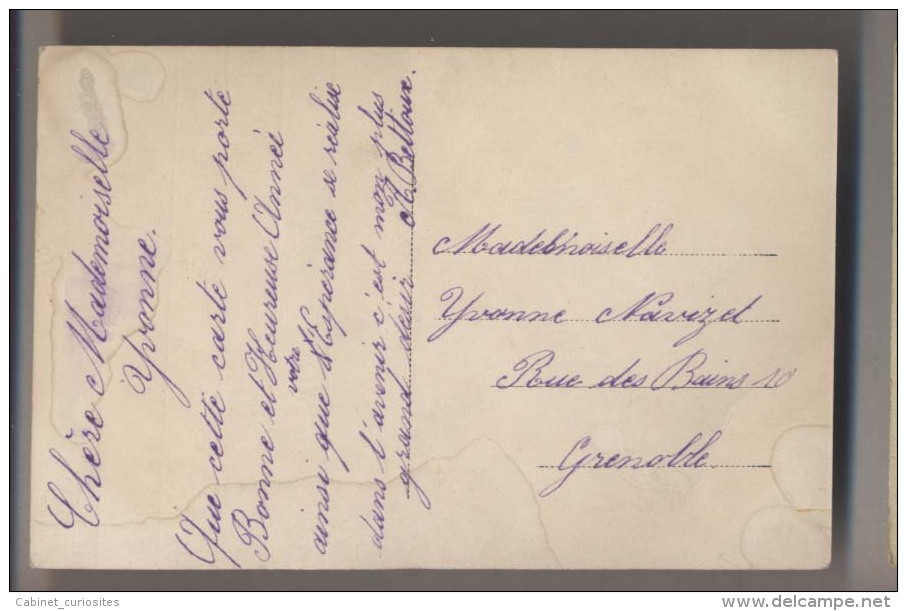 Chère Mademoiselle
Yvonne.
Que cette carte vous porte
Bonne et Heureuse Année
votre
ainsi que Espérance se réalise
dans l'avenir c'est mon plus
grand désir
Mademoiselle
Yvonne Navizet
Rue des Bains 10
Grenoble
Cabinet_curiosites
http://www.delcampe.net